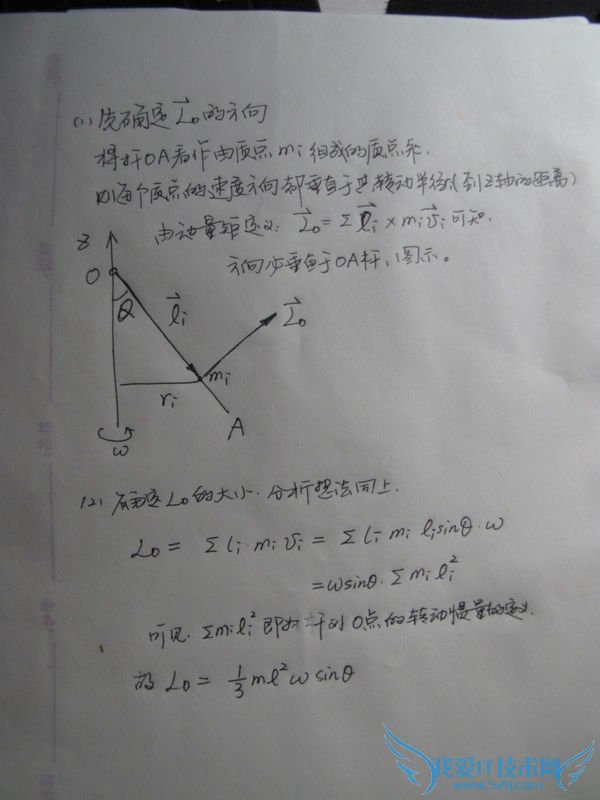 (1) 先确定 L⃗₀ 的方向
将杆OA看作由质点 mᵢ 组成的质点系.
则每个质点的速度方向都垂直于其转动半径(到Z轴的距离)
由动量矩定义: L⃗₀ = Σ l⃗ᵢ × mᵢv⃗ᵢ 可知.
方向必垂直于OA杆、图示。
z
O
θ
l⃗ᵢ
L⃗₀
mᵢ
rᵢ
A
ω
(2) 确定L₀的大小. 分析想法同上.
L₀ = Σ lᵢ·mᵢ vᵢ = Σ lᵢ mᵢ lᵢsinθ·ω
=ωsinθ·Σ mᵢ lᵢ²
可见. Σmᵢlᵢ² 即为杆对O点的转动惯量的定义.
故 L₀ = 1/3 ml²ω sinθ
我爱IT技术网
www.52ij.com